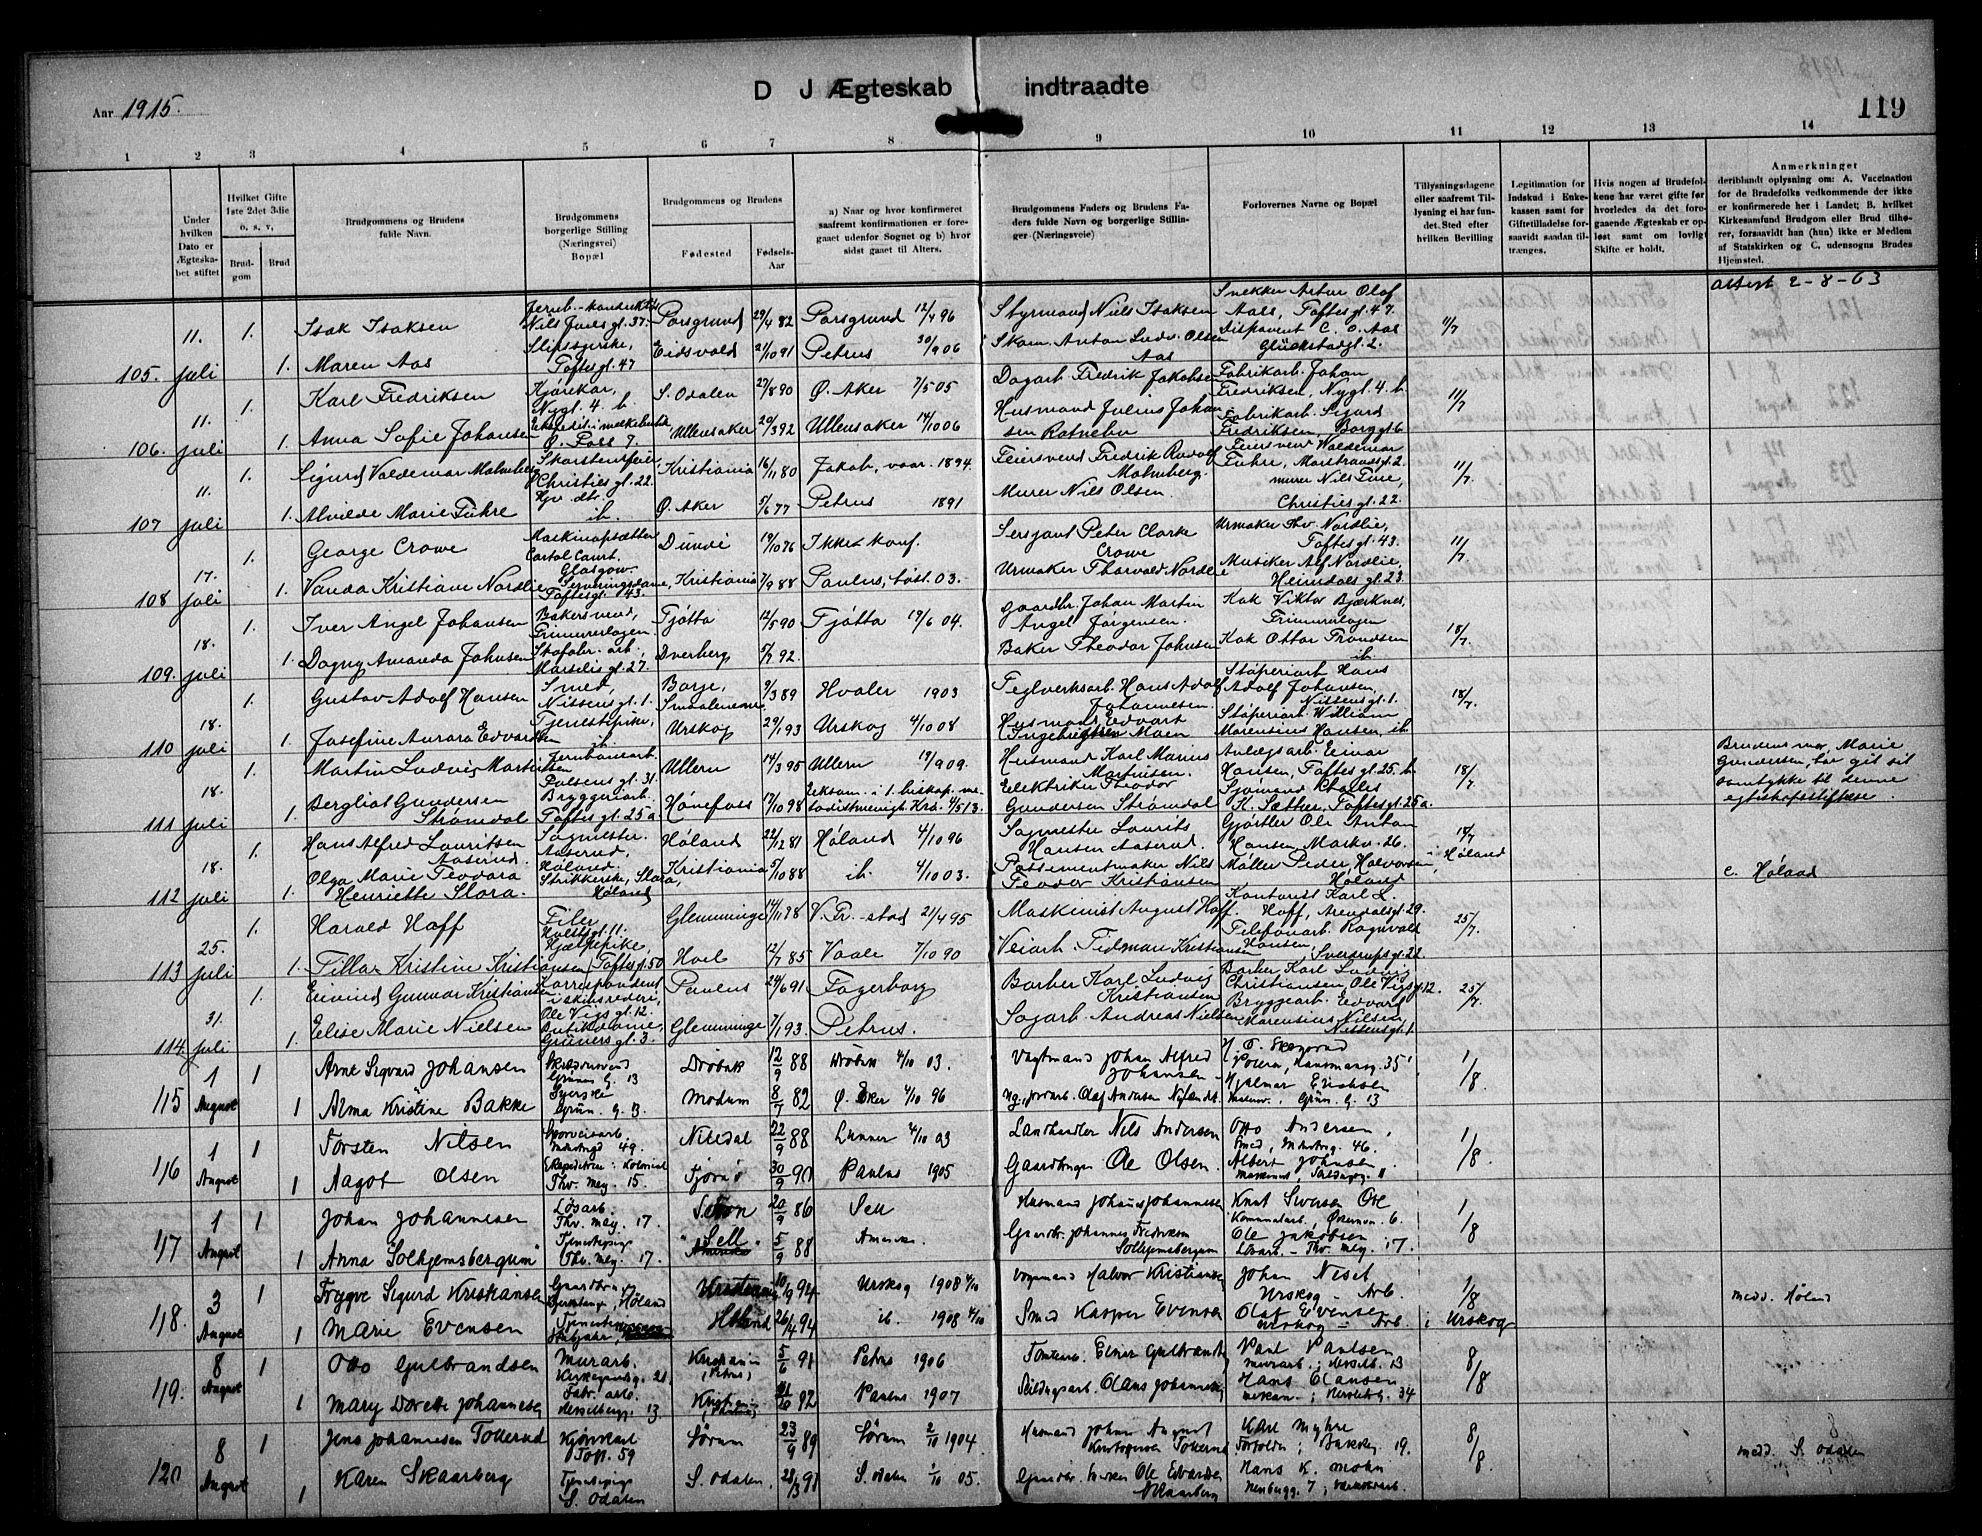 D J Ægteskab indtraadte
Aar 1915.
119
1 2 3 4 5 6 7 8 9 10 11 12 13 14
Under hvilken Dato er Ægteskabet stiftet
Hvilket Gifte 1ste 2det 3die o. s. v,
Brudgom
Brud
Brudgommens og Brudens fulde Navn.
Brudgommens borgerlige Stilling (Næringsvei) Bopæl
Brudgommens og Brudens
Fødested
Fødsels-Aar
a) Naar og hvor konfirmeret saafremt konfirmationen er foregaaet udenfor Sognet og b) hvor sidst gaaet til Alters.
Brudgommens Faders og Brudens Faders fulde Navn og borgerlige Stillinger (Næringsveie)
Forlovernes Navne og Bopæl
Tillysningsdagene eller saafremt Tillysning ei har fundet. Sted efter hvilken Bevilling
Legitimation for Indskud i Enkekassen samt for Giftetilladelse forsaavidt saadan tiltrænges.
Hvis nogen af Brudefolkene har været gifte før hvorledes da det foregaaende Ægteskab er opløst samt om lovligt Skifte er holdt.
Anmerkninger
deriblandt oplysning om: A. Vaccination for de Brudefolks vedkommende der ikke er konfirmerede her i Landet; B. hvilket Kirkesamfund Brudgom eller Brud tilhører, forsaavidt han (hun) ikke er Medlem af Statskirken og C. udensogns Brudes Hjemsted.
attest 2-8-63
105. 11. juli 1. Isak Isaksen Nils Juels gt. 37. Porsgrund 29/4 82 Porsgrund 12/4 96 Styrmand Niels Isaksen Snekker Artur Olaf Aas, Toftes gt. 47. 11/7
1. Maren Aas Toftes gt. 47 Eidsvold 21/10 91 Petrus 30/9 06 Skom. Anton Ludv. Olsen Aas Disponent C. O. Aas Glückstadgt. 2.
106. 11. juli 1. Karl Fredriksen Kjørekar, Nygt. 4. b. S. Odalen 27/8 90 Ø. Aker 7/5 05 Dagarb. Fredrik Jakobsen Fabrikarb. Johan Fredriksen, Nygt. 4. b. 11/7
1. Anna Sofie Johansen Ø. Foss 7. Ullensaker 20/3 92 Ullensaker 14/10 06 Husmand Julius Johansen Ratnebu Fabrikarb. Sigurd Fredriksen, Borggt. 6
107 11. juli 1. Sigurd Valdemar Malmberg Skorstensfeier Christies gt. 22. Kristiania 16/11 80 Jakob, vaar. 1894. Feiersvend Fredrik Rudolf Malmberg. Feiersvend Waldemar Fuhre, Marstrandsgt. 2. 11/7.
1. Alvilde Marie Fuhre Hjv. dtr. ib. Ø. Aker 5/6 77 Petrus 1891 Murer Nils Olsen. murer Nils Fure, Christies gt. 22.
108 17. juli 1. George Crowe Maskinopsætter Glasgow. Dundi 19/10 76 Ikke konf. Sersjant Peter Clarke Crowe Urmaker Thv. Nordlie, Toftes gt. 43. 11/7.
1. Vanda Kristiane Nordlie Serveringsdame, Toftesgt. 43. Kristiania 7/9 88 Paulus, høst. 03. Urmaker Thorvald Nordlie Musiker Alf Nordlie, Heimdals gt. 23.
109. 18. juli 1. Iver Angel Johansen Bakersvend, Trimmerlogen Tjøtta 12/5 90 Tjøtta 19/6 04. Gaardbr. Johan Martin Angel Jørgensen. Kok Viktor Bjerknes, Trimmerlogen 18/7.
1. Dagny Amanda Johnsen Marselis gt. 27. Dverberg 5/7 92. Baker Theodor Johnsen Kok Ottar Trondsen ib.
110 18. juli 1. Gustav Adolf Hansen Smed, Nissens gt. 1. Borge, Smaalenene 9/3 89 Hvaler 1903 Teglverksarb. Hans Adolf Johannesen. Støperiarb. Hans Adolf Johansen, Nissens gt. 1. 18/7.
1. Josefine Aurora Edvardsen Tjenestepike, ib. Urskog 29/1 93 Urskog 4/10 08 Husmand Edvart Ingebrigtsen Moen Støperiarb. William Marensius Hansen, ib
111 18. juli 1. Martin Ludvig Martinsen Jernbanearb. Pulsens gt. 31. Ullern 14/3 95 Ullern 19/9 09. Husmand Karl Marius Martinsen. Anlægsarb. Einar Hansen, Toftes gt. 25. b. 18/7
1. Bergliot Gundersen Strømdal Bryggeriarb. Toftes gt. 25 a Hønefoss 17/10 98 Eeksam. i 1. biskop. metodistmenigt. Kra. 4/5 13. Eelektriker Theodor Gundersen Strømdal Sjømand Challis K. Sæther, Toftes gt. 25 a.
Brudens mor, Marie Gundersen, har git sit samtykke til denne egteskapsstiftelse.
112 18. juli 1. Hans Alfred Lauritsen Aaserud. Sagmester. Aaserud, Høland Høland 22/12 81 Høland 4/10 96 Sagmester Laurits Hansen Aaserud. Gjørtler Ole Anton Hansen Markv. 26. 18/7 i Høland
1. Olga Marie Teodora Henriette Slora. Strikkerske, Slora, Høland Kristiania 5/10 88 ib. 4/10 03. Possementmaker Nils Teodor Kristiansen Møller Peder Halvorsen, Høland c. Høland
113 25. juli 1. Harald Hoff Filer Holstsgt. 11. Glemminge 14/11 78 V. Fr.-stad 21/4 95 Maskinist August Hoff. Kontorist Karl L. Hoff, Arendalsgt. 29. 25/7.
1. Tilla Kristine Kristiansen Hjælpepike Toftes gt. 50 Hoel 12/7 85 Vaale 7/10 90 Veiarb. Tidman Kristiansen Telefonarb. Ragnvald Hansen, Sverdrups gt. 22.
114. 31. juli 1. Eivind Gunnar Kristiansen Korrespondent i skibsrederi, Ole Vigs gt. 12. Paulus 24/6 91 Fagerborg Barber Karl Ludvig Kristiansen Barber Karl Ludvig Christiansen, Ole Vigs gt. 12. 25/7.
1. Elise Marie Nielsen Butikdame, Grüners gt. 3. Glemminge 7/1 93 Petrus. Sagarb. Andreas Nielsen Bryggearb. Edvard Marensius Nilsen, Nissens gt. 1.
115 1 August 1 Arne Sigvard Johansen Grüners G. 13 Drøbak 12/9 88 Drøbak 4/10 03. Vagtmand Johan Alfred Johansen 1/8
1 Alma Kristine Bakke Syerske Grün. G. 13. Modum 8/7 82 Ø. Eker 4/10 96 Hjalmar Erichsen Grün. G. 13
116 1 August 1 Torsten Nilsen 49. Nitedal 22/9 88 Lunner 4/10 03 Landhandler Nils Andersen Otto Andersen, Smed, 46. 1/8.
1 Aagot Olsen Thv. Mey. 15. Tjømø 30/9 90 Paulus 1905 Gaardbruger Ole Olsen. Albert Johnsen
117 1 August 1 Johan Johannesen Løsarb. Thv. Mey. 17. 20/9 86 Sell Husmand Johannes Johannesen Knut Iversen Ose 6. 1/8
1 Anna Solhjemsbergum Thv. Mey. 17. Sell 5/9 88 Amerika. Gaardbr. Johannes Fredriksen Solhjemsbergum Ole Jakobsen Løsarb. - Thv. Mey. 17.
118. 3 August 1 Trygve Sigurd Kristiansen Gaardbruger Høland Kristiania 10/9 94 Urskog 1908 4/10 Halvor Kristiansen Johan Neset Urskog - Arb. 1/8 medd. Høland
1 Marie Evensen Høland 26/4 94 ib. 1908 4/10 Smed Kasper Evensen Olaf Evensen Urskog - Arb. i Urskog
119. 8 August 1 Otto Gulbrandsen Murarb. Kirkegaardsg. 21 Kristiania (Petrus) 5/6 91 Petrus 1906 Tomtearb. Elmer Gulbrandsen Paul Paulsen Murarb.; Herslebs. 13 8/8
1 Mary Dorette Johannesen Fabr. arb. 13. Kristiania 92 Paulus 1907 Olaus Johannesen Hans Olausen 34
120 8 August 1 Jens Johannesen Tollerud Kjørekarl Tof. 59 Sørum 23/9 89 Sørum 2/10 1904. Husmand Johan August Tollerud Karl Myhre 19. 8/8. medd. S. Odalen
1 Karen Skaarberg Tjenestepige S. Odalen S. Odalen, 28/3 91 S. Odalen 1/10 05. Ole Edvardsen Skaarberg Hans K. Mohn